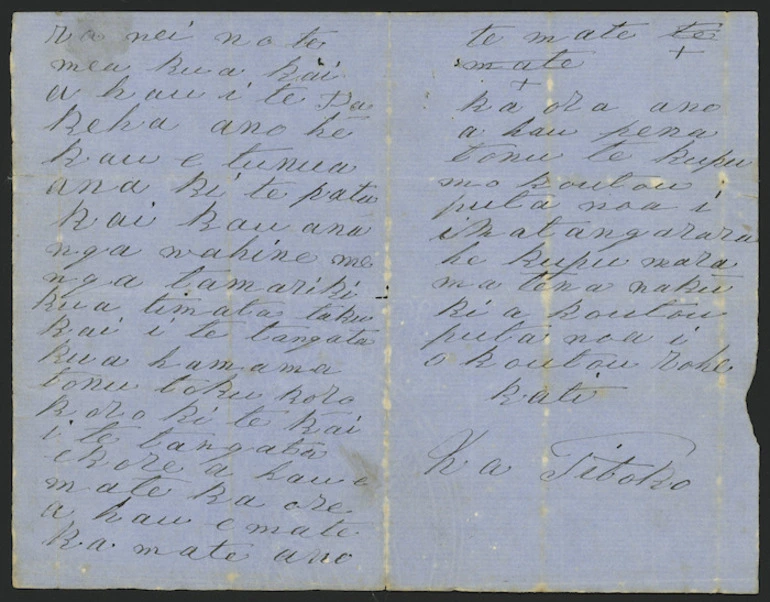 ra nei no te
mea kua kai
a hau i te Pa
keha ano he
kau e tunua
ana ki te patu
kai kau ana
nga wahine me
nga tamariki
kua timata taku
kai i te tangata
kua hamama
tonu toku koro
koro ki te kai
i te tangata
ekore a hau e
mate ka ore
a hau e mate
ka mate ano
te mate te
mate
ka ora ano
a hau pena
tonu te kupu
mo koutou
puta noa i
i Matangarara
he kupu mara
ma tena naku
ki a koutou
puta noa i
o koutou rohe
kati
Na Titoko